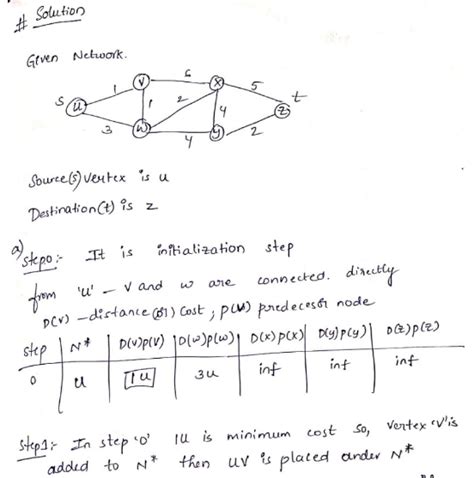 # Solution
Given Network.
S u 1 v 6 x 5 t z
3 w 1 2 4 y 4 2
Source(s) vertex is u
Destination(t) is z
a) Step0:- It is initialization step
from 'u' - v and w are connected. directly
D(v) - distance (or) cost, p(v) predecesor node
step N* D(v)p(v) D(w)p(w) D(x)p(x) D(y)p(y) D(z)p(z)
0 u 1u 3u inf inf inf
Step1:- In step '0' 1u is minimum cost so, vertex 'v' is
added to N* then uv is placed under N*